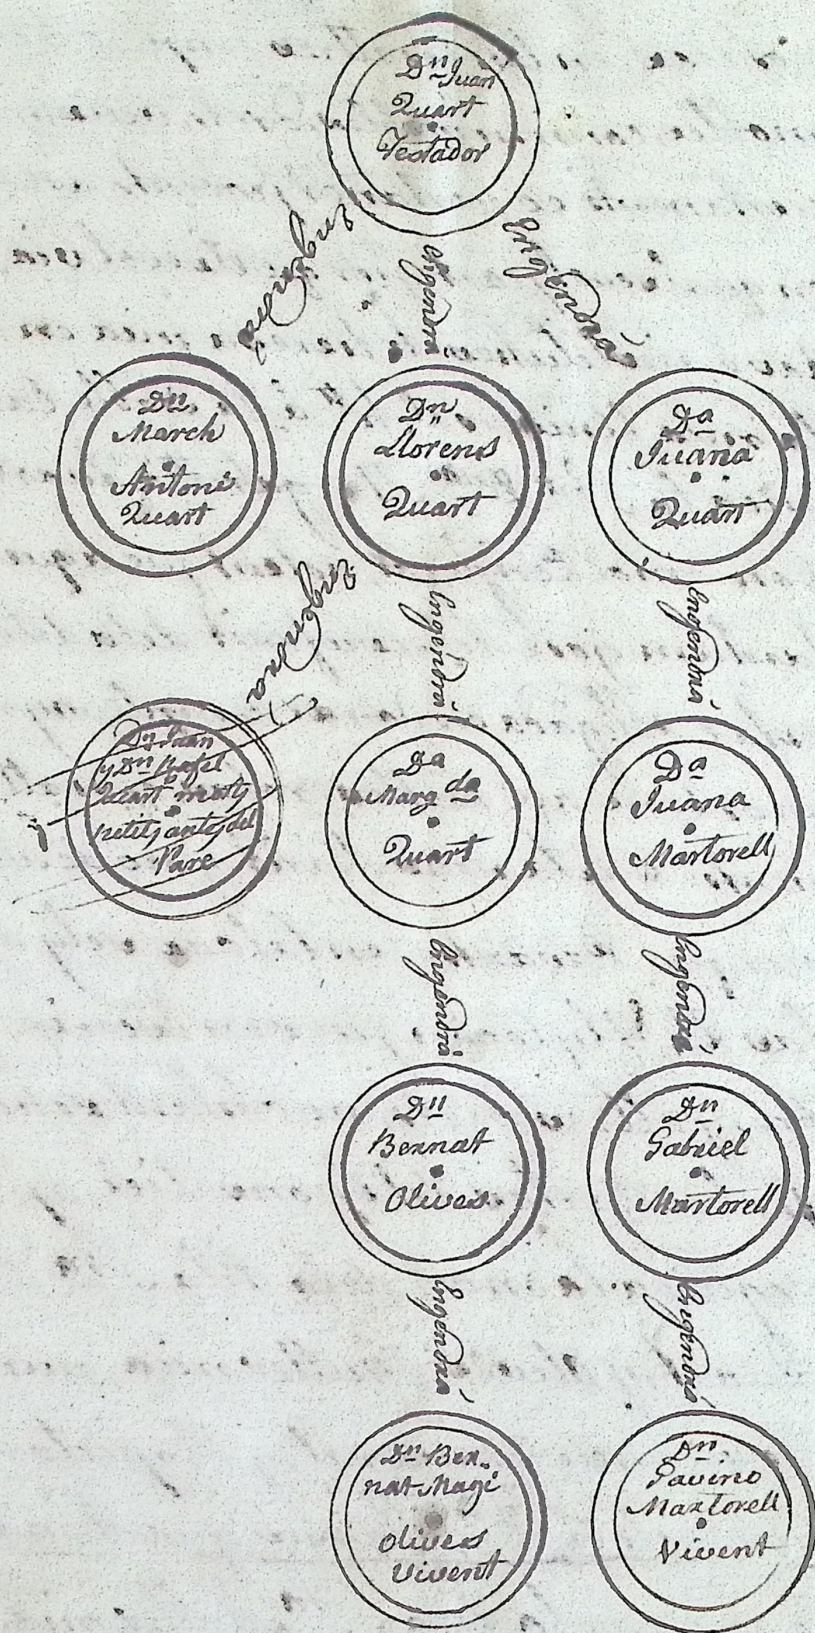 Dn Juan
Quart
Testador
Engendrá
Engendrá
Engendrá
Dn
March
Antoni
Quart
Dn
Llorens
Quart
Da
Juana
Quart
Engendrá
Engendrá
Engendrá
Dn Juan
y Dn Rafel
Quart morts
petits antes del
Pare
Da
Margda
Quart
Da
Juana
Martorell
Engendrá
Engendrá
Dn
Bernat
Olives
Dn
Gabriel
Martorell
Engendrá
Engendrá
Dn Ber-
nat Magi
Olives
Vivent
Dn
Gavino
Martorell
Vivent